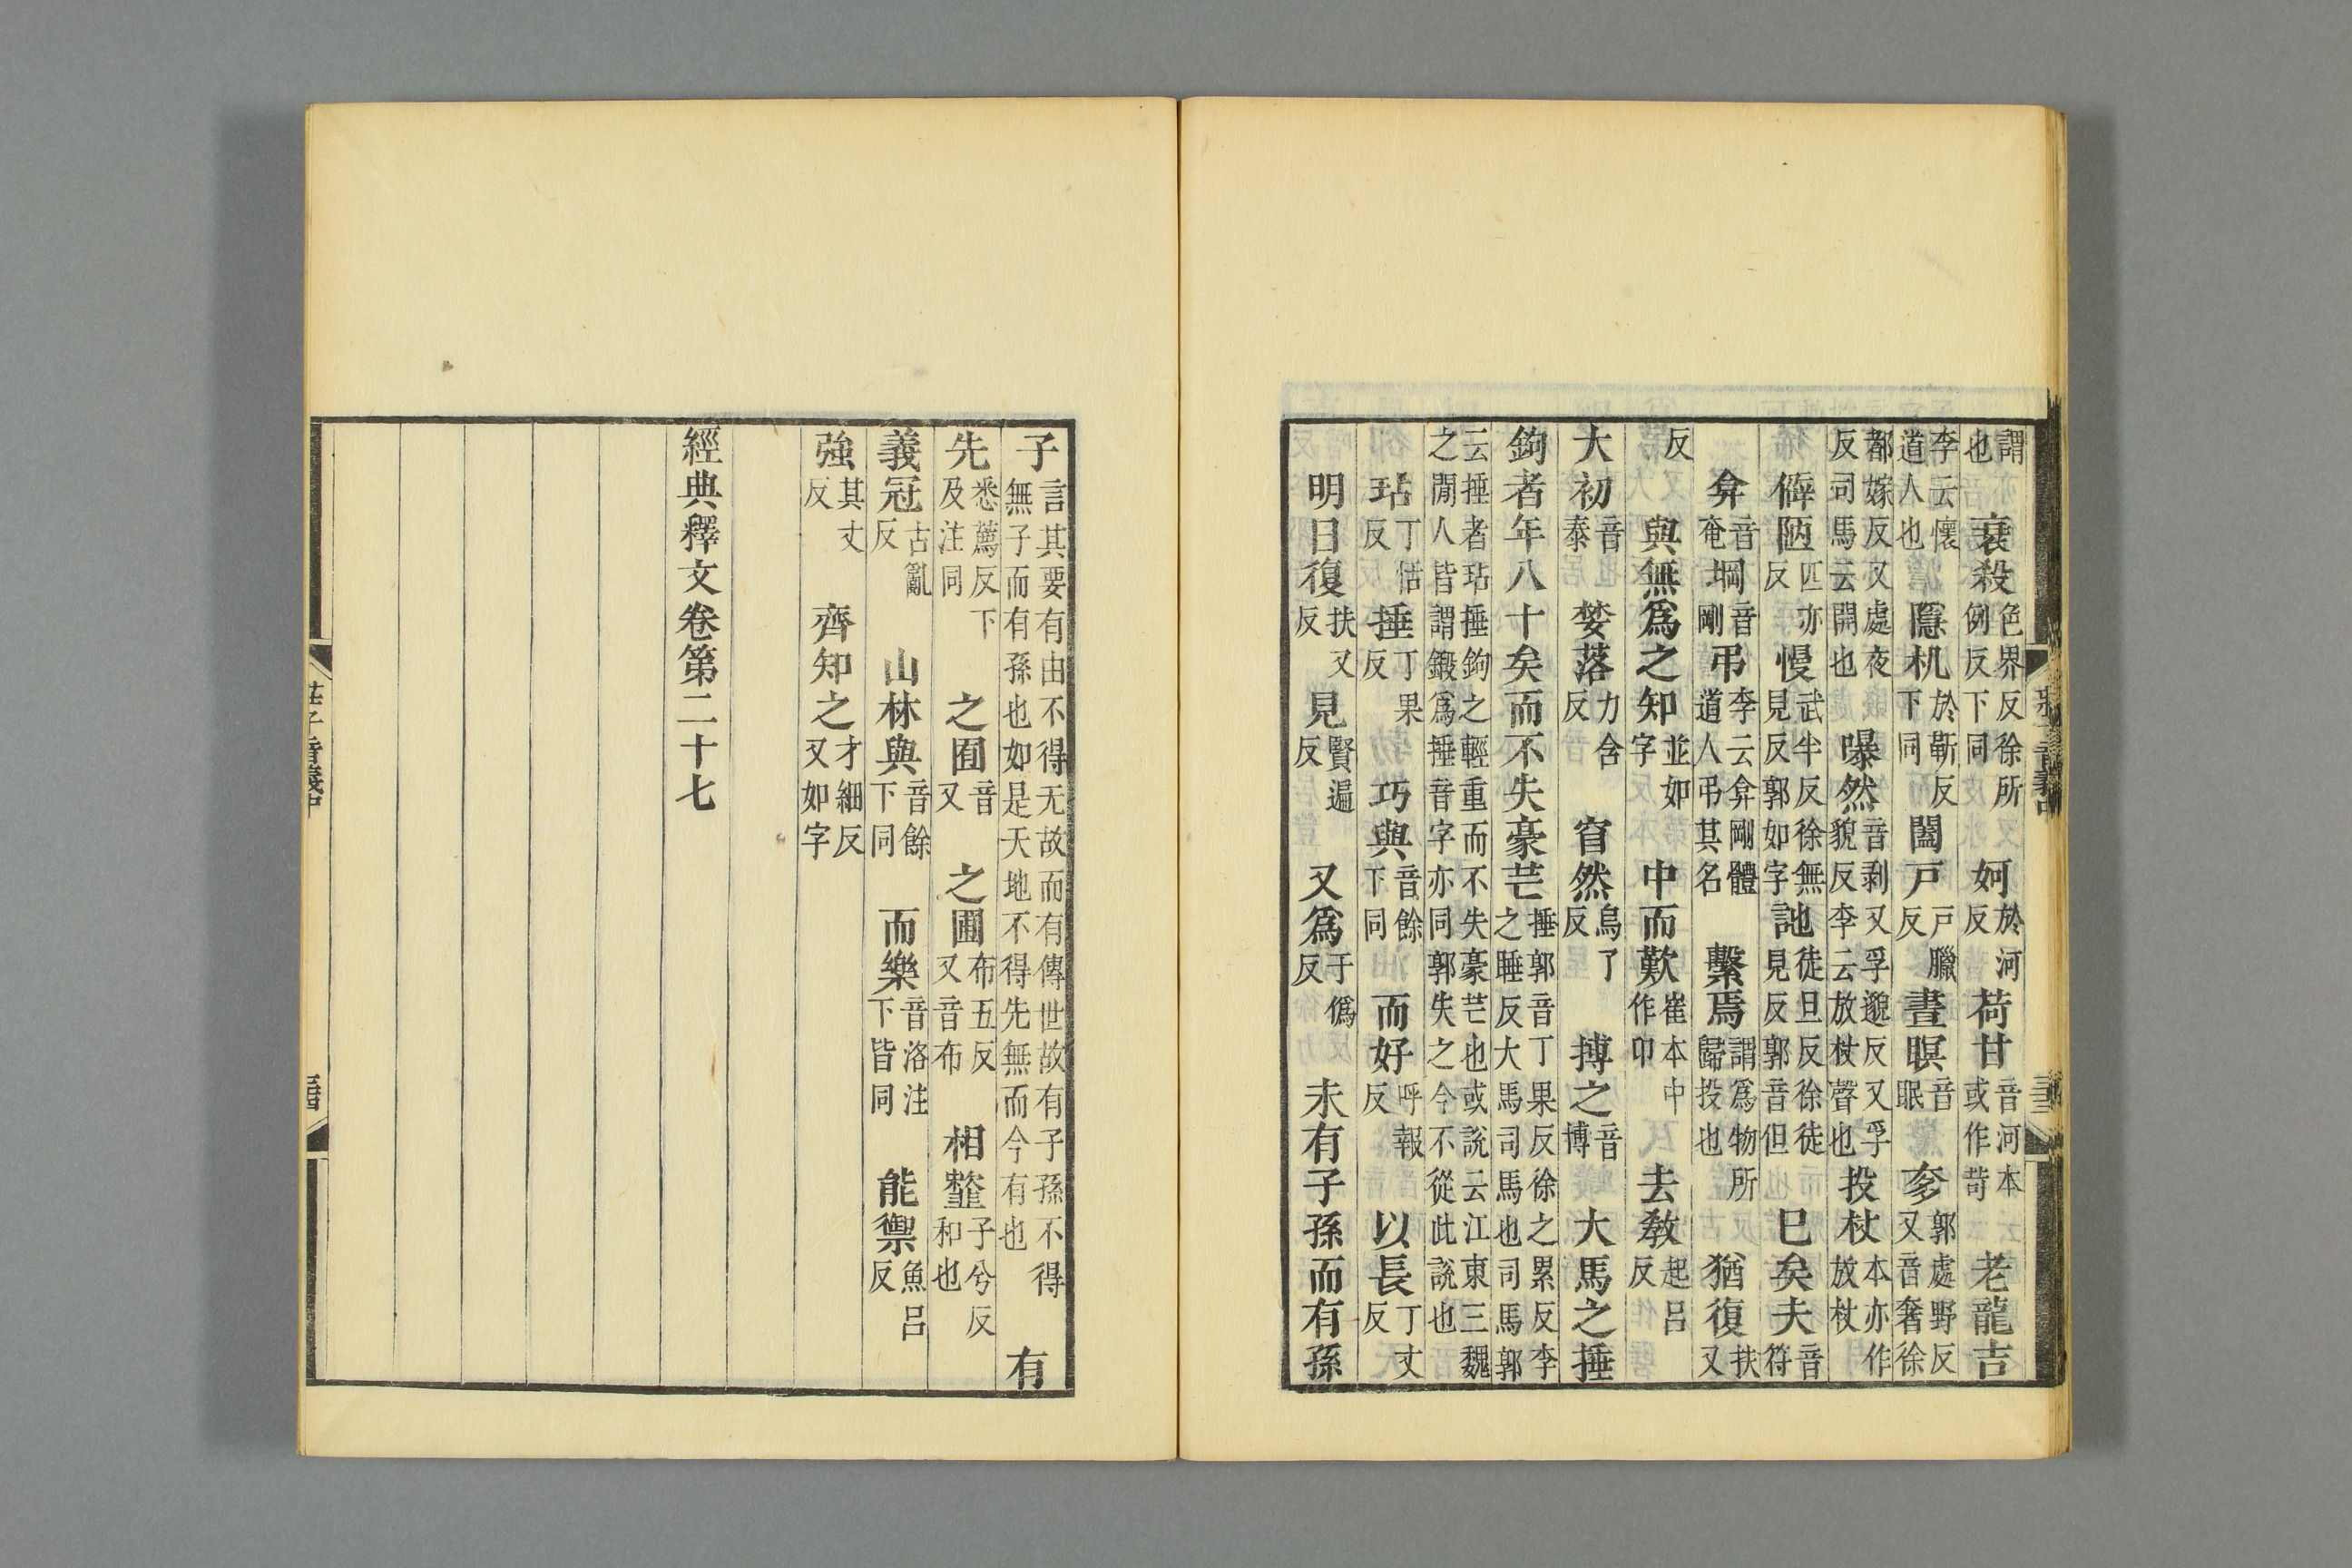 謂也 衰殺色界反徐所例反下同 妸於河反 荷甘音河本或作苛 老龍吉
李云懷道人也 隱机於靳反下同 闔戸戸臘反 晝瞑音眠 奓郭處野反又音奢徐
都嫁反又處夜反司馬云開也 曝然音剥又孚邈反又孚貌反李云放杖聲也 投杖本亦作放杖
僻陋匹亦反 慢武半反徐無見反郭如字 訑徒旦反徐徒見反郭音但 巳矣夫音符
弇音奄 堈音剛 弔李云弇剛體道人弔其名 繫焉謂爲物所歸投也 猶復扶又
反 與無爲之知並如字 中而歎崔本中作卬 去敎起呂反
大初音泰 婪落力含反 窅然烏了反 搏之音博 大馬之捶
鉤者年八十矣而不失豪芒捶郭音丁果反徐之累反李之睡反大馬司馬也司馬郭
云捶者玷捶鉤之輕重而不失豪芒也或說云江東三魏之閒人皆謂鍛爲捶音字亦同郭失之今不從此說也
玷丁恬反 捶丁果反 巧與音餘下同 而好呼報反 以長丁丈反
明日復扶又反 見賢遍反 又爲于僞反 未有子孫而有孫
子言其要有由不得无故而有傳世故有子孫不得無子而有孫也如是天地不得先無而今有也 有
先悉薦反下及注同 之囿音又 之圃布五反又音布 相䪠子兮反和也
義冠古亂反 山林與音餘下同 而樂音洛注下皆同 能禦魚呂反
強其丈反 齊知之才細反又如字
經典釋文卷第二十七
莊子音義中